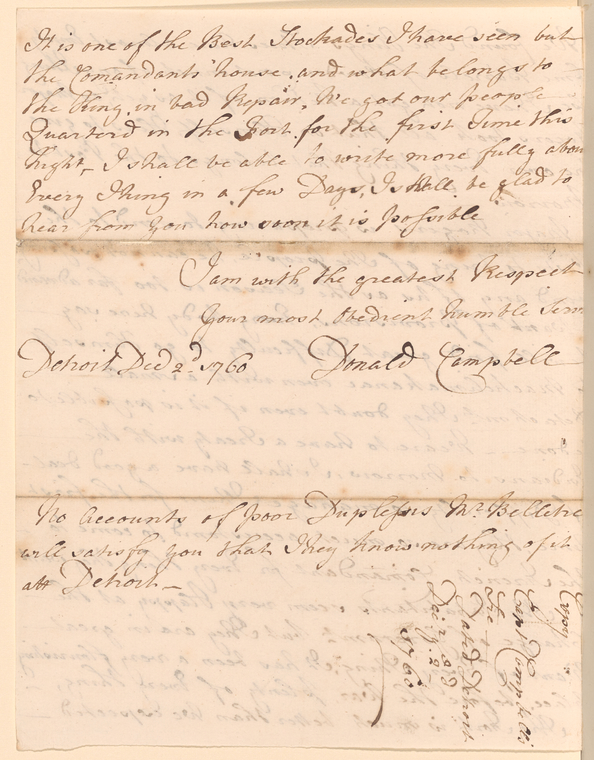 It is one of the Best Stockades I have seen but
the Comandants house and what belongs to
the King in bad Repair, We got our people
Quarterd in the Fort for the first Time this
Night, I shall be able to write more fully about
Every Thing in a few Days, I shall be glad to
hear from you how soon it is possible
I am with the greatest Respect
Your most Obedient humble Serv
Detroit Ded 2d. 1760 Donald Campbell
No Accounts of poor Duplessis Mr. Belletre
will satisfy you that they know nothing of it
att Detroit
Copy
Capt Campbells
Dated Detroit
2d
1760